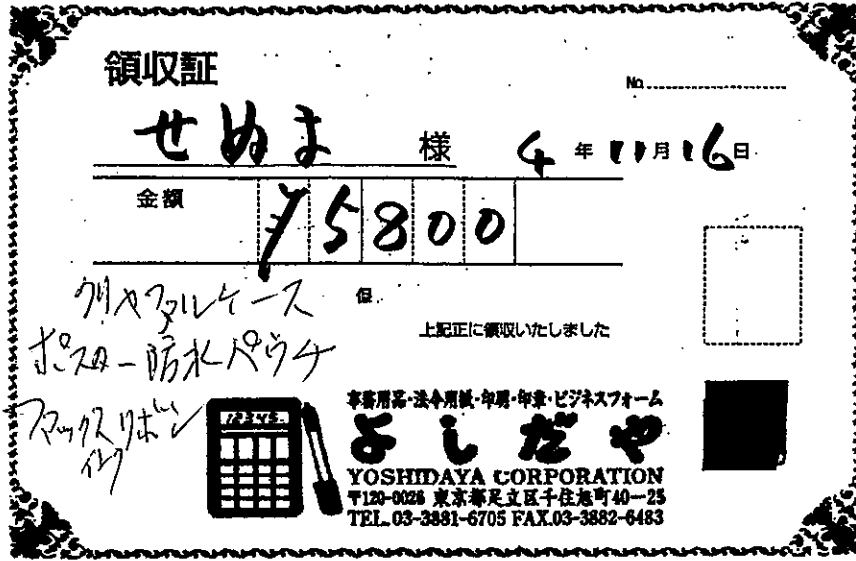 領収証
No.
せぬま 様 4年11月16日
金額 ¥5800
クリヤフアルケース
但
上記正に領収いたしました
ポスター防水パウチ
ファックスリボン
インク
12345.
事務用品・法令用紙・印刷・印章・ビジネスフォーム
よしだや
YOSHIDAYA CORPORATION
〒120-0026 東京都足立区千住旭町40-25
TEL.03-3881-6705 FAX.03-3882-6483